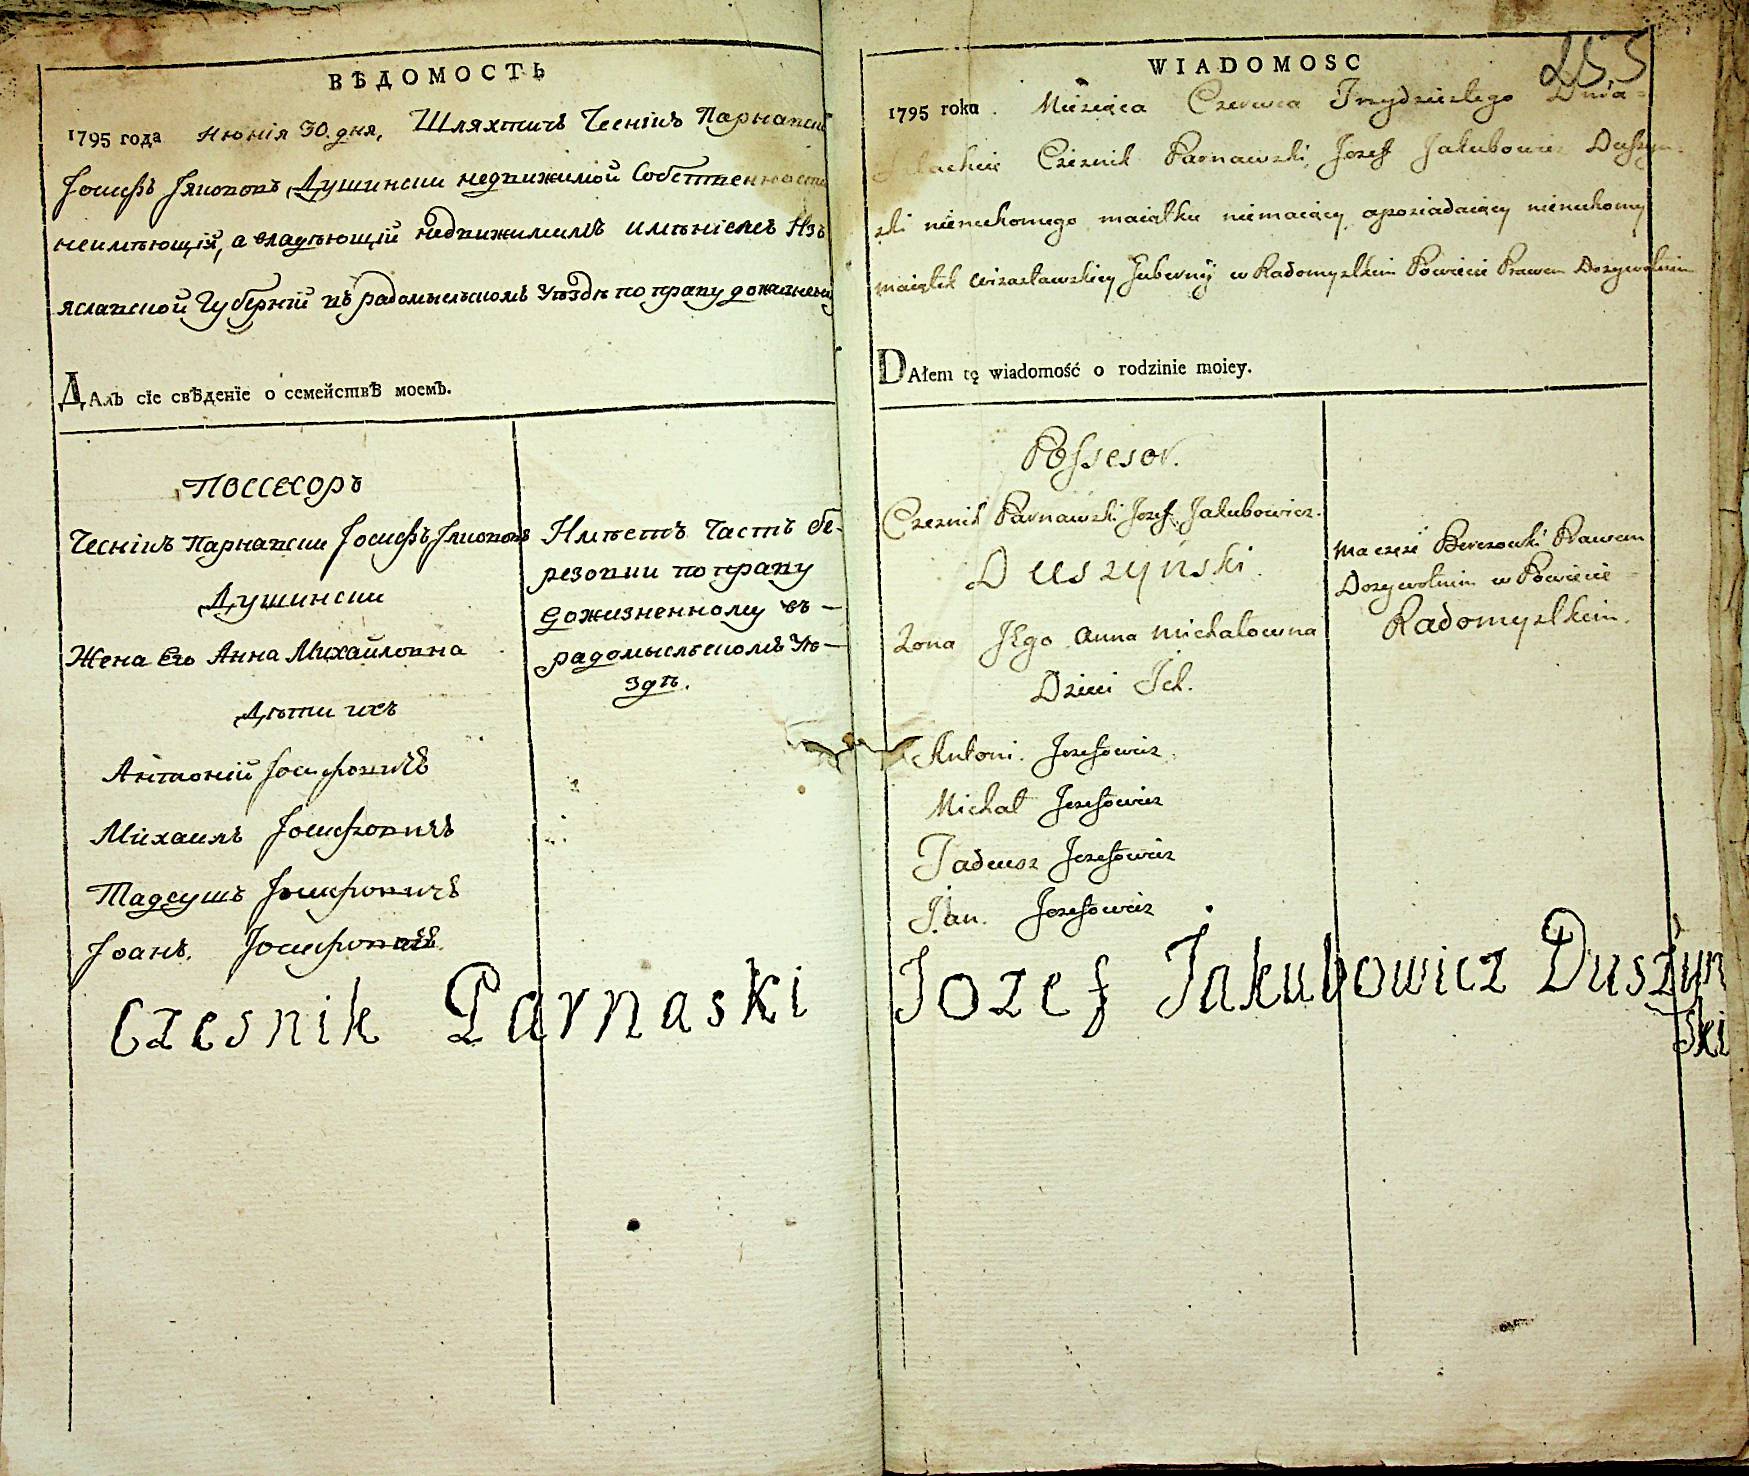 ВѢДОМОСТЬ
1795 года июнія 30. дня, Шляхтичъ Чесникъ Парнавски
Іосифъ Якововъ Душински недвижимой собственности
неимѣющій, а владѣющій недвижимымъ имѣніемъ Изъ
яславской Губерніи въ радомысльскомъ уѣздѣ по праву дожизнену
Далъ сїе свѣденїе о семействѣ моемъ.
Поссесоръ
Чеснікъ Парнавски Іосифъ Якововъ
Душински
Жена Его Анна Михайловна
Дѣти ихъ
Антоній Іосифовичъ
Михаилъ Іосифовичъ
Тадеушъ Іосифовичъ
Іоанъ. Іосифовичъ
Имѣетъ часть бе-
резовки по праву
дожизненному въ –
радомысльскомъ Уѣ –
здѣ.
Czesnik Parnaski
255
WIADOMOSC
1795 roku. Miesiąca Czerwca Trzydziestego Dnia -
Szlachcic Czesnik Parnawski, Jozef Jakubowicz Duszyn-
ski nieruchomego maiątku niemaiący, aposiadaiący nieruchomy
maiątek wizasławskiey Gubernij w Radomyslkim Powiecie Prawem Dożywotnim
DAłem tę wiadomość o rodzinie moiey.
Possesor.
Czesnik Parnawski Jozef Jakubowicz.
Duszyński.
Zona Jego Anna Michałowna
Dzieci Ich.
Antoni. Jozefowicz.
Michał Jozefowicz
Tadeusz Jozefowicz
Jan. Jozefowicz
Ma częsć Berezowki Prawem
Dozywotnim w Powiecie -
Radomyslkim.
Jozef Jakubowicz Duszyn
Ski